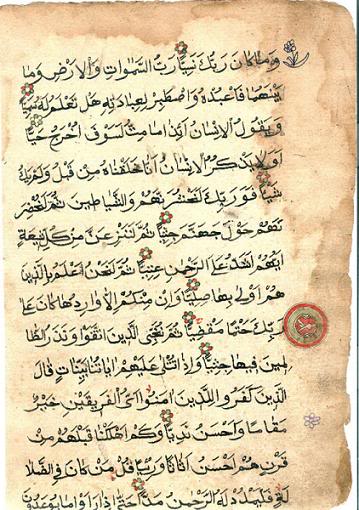 وَمَا كَانَ رَبُّكَ نَسِيًّا رَبُّ السَّمٰوَاتِ وَالْاَرْضِ وَمَا
بَيْنَهُمَا فَاعْبُدْهُ وَاصْطَبِرْ لِعِبَادَتِهِ هَلْ تَعْلَمُ لَهُ سَمِيًّا
وَيَقُولُ الْاِنْسَانُ اَئِذَا مَا مِتُّ لَسَوْفَ اُخْرَجُ حَيًّا
اَوَلَا يَذْكُرُ الْاِنْسَانُ اَنَّا خَلَقْنَاهُ مِنْ قَبْلُ وَلَمْ يَكُ
شَيْئًا فَوَرَبِّكَ لَنَحْشُرَنَّهُمْ وَالشَّيَاطِينَ ثُمَّ لَنُحْضِرَ
نَّهُمْ حَوْلَ جَهَنَّمَ جِثِيًّا ثُمَّ لَنَنْزِعَنَّ مِنْ كُلِّ شِيعَةٍ
اَيُّهُمْ اَشَدُّ عَلَى الرَّحْمٰنِ عِتِيًّا ثُمَّ لَنَحْنُ اَعْلَمُ بِالَّذِينَ
هُمْ اَوْلٰى بِهَا صِلِيًّا وَاِنْ مِنْكُمْ اِلَّا وَارِدُهَا كَانَ عَلٰى
رَبِّكَ حَتْمًا مَقْضِيًّا ثُمَّ نُنَجِّى الَّذِينَ اتَّقَوْا وَنَذَرُ الظَّا
لِمِينَ فِيهَا جِثِيًّا وَاِذَا تُتْلٰى عَلَيْهِمْ اٰيَاتُنَا بَيِّنَاتٍ قَالَ
الَّذِينَ كَفَرُوا لِلَّذِينَ اٰمَنُوا اَىُّ الْفَرِيقَيْنِ خَيْرٌ
مَقَامًا وَاَحْسَنُ نَدِيًّا وَكَمْ اَهْلَكْنَا قَبْلَهُمْ مِنْ
قَرْنٍ هُمْ اَحْسَنُ اَثَاثًا وَرِءْيًا قُلْ مَنْ كَانَ فِى الضَّلَا
لَةِ فَلْيَمْدُدْ لَهُ الرَّحْمٰنُ مَدًّا حَتّٰى اِذَا رَاَوْا مَا يُوعَدُونَ